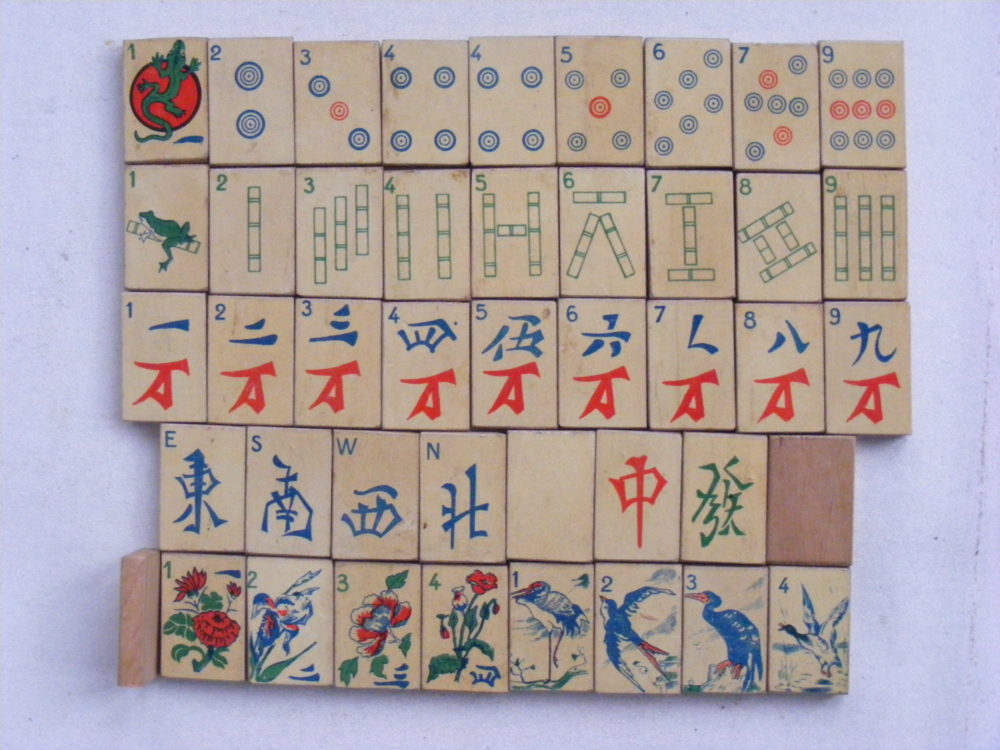 1 2 3 4 4 5 6 7 9
一
1 2 3 4 5 6 7 8 9
1 2 3 4 5 6 7 8 9
一 二 三 四 伍 六 七 八 九
万 万 万 万 万 万 万 万 万
E S W N
東 南 西 北 中 發
1 2 3 4 1 2 3 4
一 二 三 四